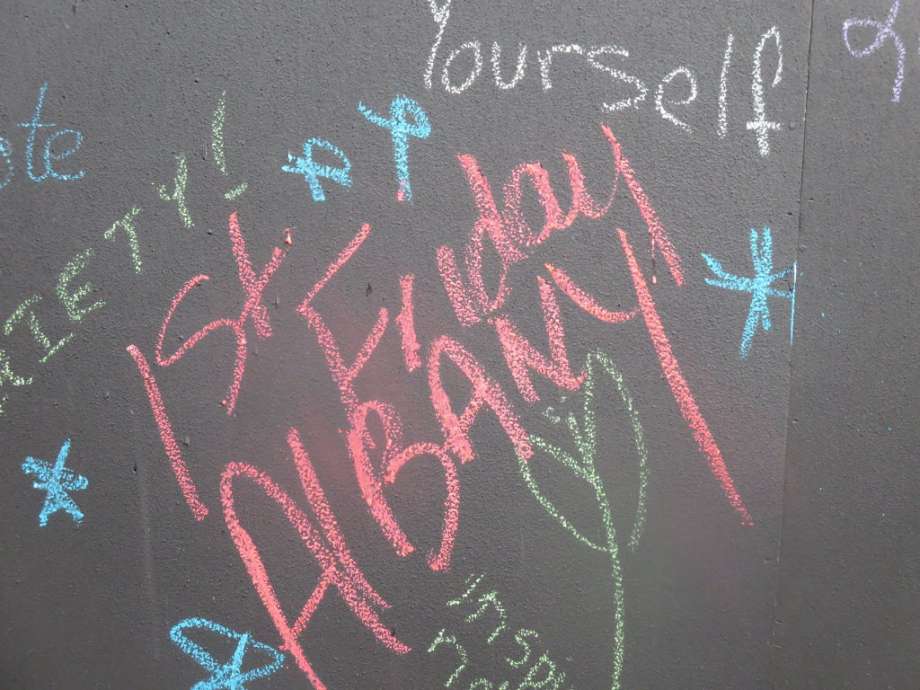 Yourself
ote
RIETY!
1st Friday
ALBANY
insp